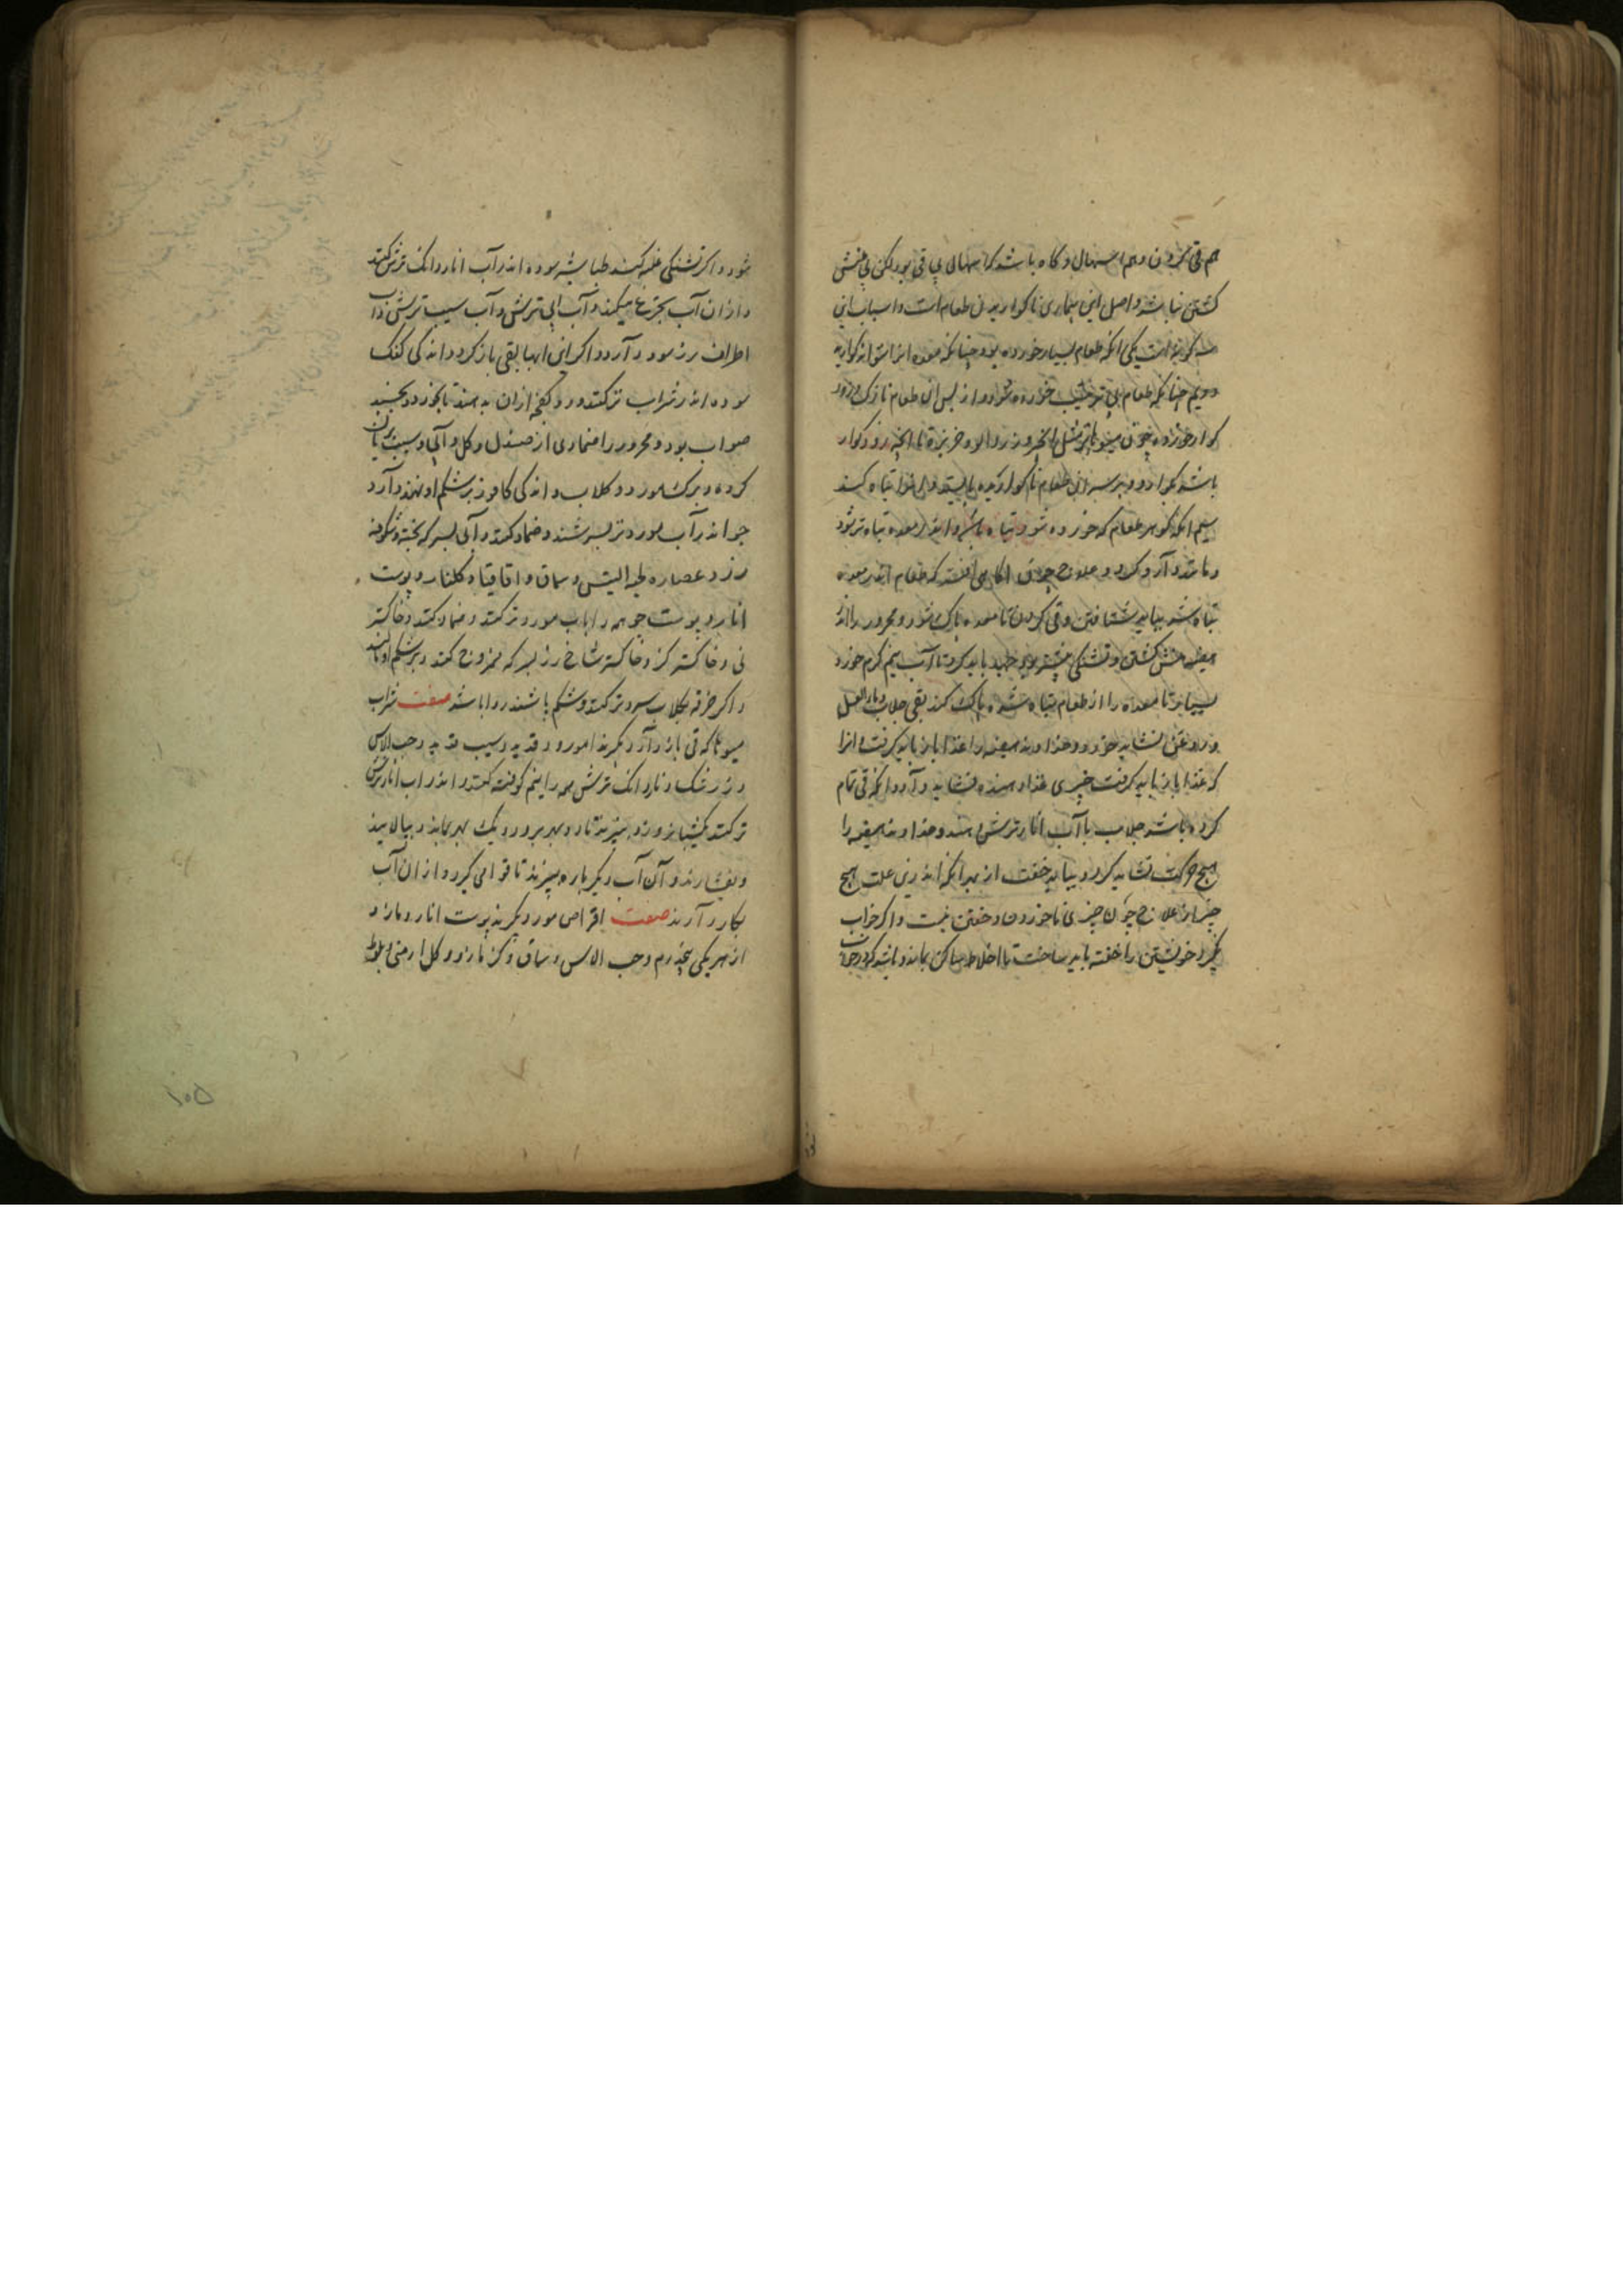 هم قی کردن و هم اسهال و گاه باشد که اسهال بی قی بود لکن بی منش
کشتن نباشد و اصل این بیماری ناگواریدن طعام است و اسباب این
سه گونه است یکی آنکه طعام بسیار خورده بود چنانکه معده انرا نتواند گوارید
دویم چنانکه طعام بی ترتیب خورده شود و از پس آن طعام نازک و زود
گوار خورده چون میوه تر مثل انجیر و زردالو و خربزه تا آنچه زود گوار
باشد بگوارد و بر سر این طعام ناگواریده بایستد و این را تباه کند
سیم آنکه گوهر طعام که خورده شود تباه باشد و اندر معده تباه تر شود
و ماند و آرو کند و علاج چون آگاهی افتد که طعام اندر معده
تباه شد بباید شتافتن و قی کردن تا معده پاک شود و محرور را اندر
هیضه منش گشتن و تشنگی بیشتر بود جهد باید کرد تا آب نیم گرم خورد
بسیار تا معده را از طعام تباه شده پاک کند بقی جلاب و ماء العسل
و روغن نشاید خورد و خداوند هیضه را غذا باز باید گرفت و انرا
که غذا باز باید گرفت چیزی غذا دهنده نشاید و آرد و آنکه قی تمام
کرده باشد جلاب با آب انار ترش دهند و خداوند هیضه را
هیچ حرکت نشاید کرد و بباید خفت از بهر آنکه اندرین علت هیچ
چیز از علاج چون چیزی ناخوردن و خفتن نیست و اگر خواب
نگیرد خویشتن را خفته باید ساخت تا اخلاط ساکن بماند و باشد که در خواب
شود و اگر تشنگی غلبه کند طباشیر سوده اندر آب اناردانک ترش کنند
و از ان آب بجرعه میکند و آب آبی ترش و آب سیب ترش و آب
اطراف رز سود دارد و اگر این آبها بقی باز گردد اندکی کعک
سوده اندر شراب تر کنند و دو کفچه ازان بدهند تا بخورد و بخسبد
صواب بود و محرور را ضمادی از صندل و گل و آبی و سیب بریان
کرده و برگ مورد و گلاب و اندکی کافور بر شکم او نهند و آرد
جو اندر آب مورد تر بسرشند و ضماد کنند و آبی بسرکه پخته و شکوفه
رز و عصاره لحیة التیس و سماق و اقاقیا و گلنار و پوست
انار و پوست جو همه را باب مورد تر کنند و ضماد کنند و خاکستر
نی و خاکستر گز و خاکستر شاخ رز بسرکه ممزوج کنند و بر شکم او مالند
و اگر خرقه بگلاب سرد تر کنند و بشکم پاشند روا باشد صفت شراب
میوها که قی باز دارد بگیرند امرود قدید و سیب قدید و حب الاس
و زرشک و ناردانک ترش همه را نیم کوفته کنند و اندر آب انار ترش
تر کنند یکشبانروز و بپزند تا دو بهر برود و یک بهر بماند و بپالایند
و بفشارند و آن آب دیگر باره بپزند تا قوامی گیرد و از ان آب
بکار دارند صفت اقراص مورد بگیرند پوست انار و مازو
از هر یکی پنج درم و حب الاس و سماق و کزمازو و گل ارمنی و بلوط
۱۰۵